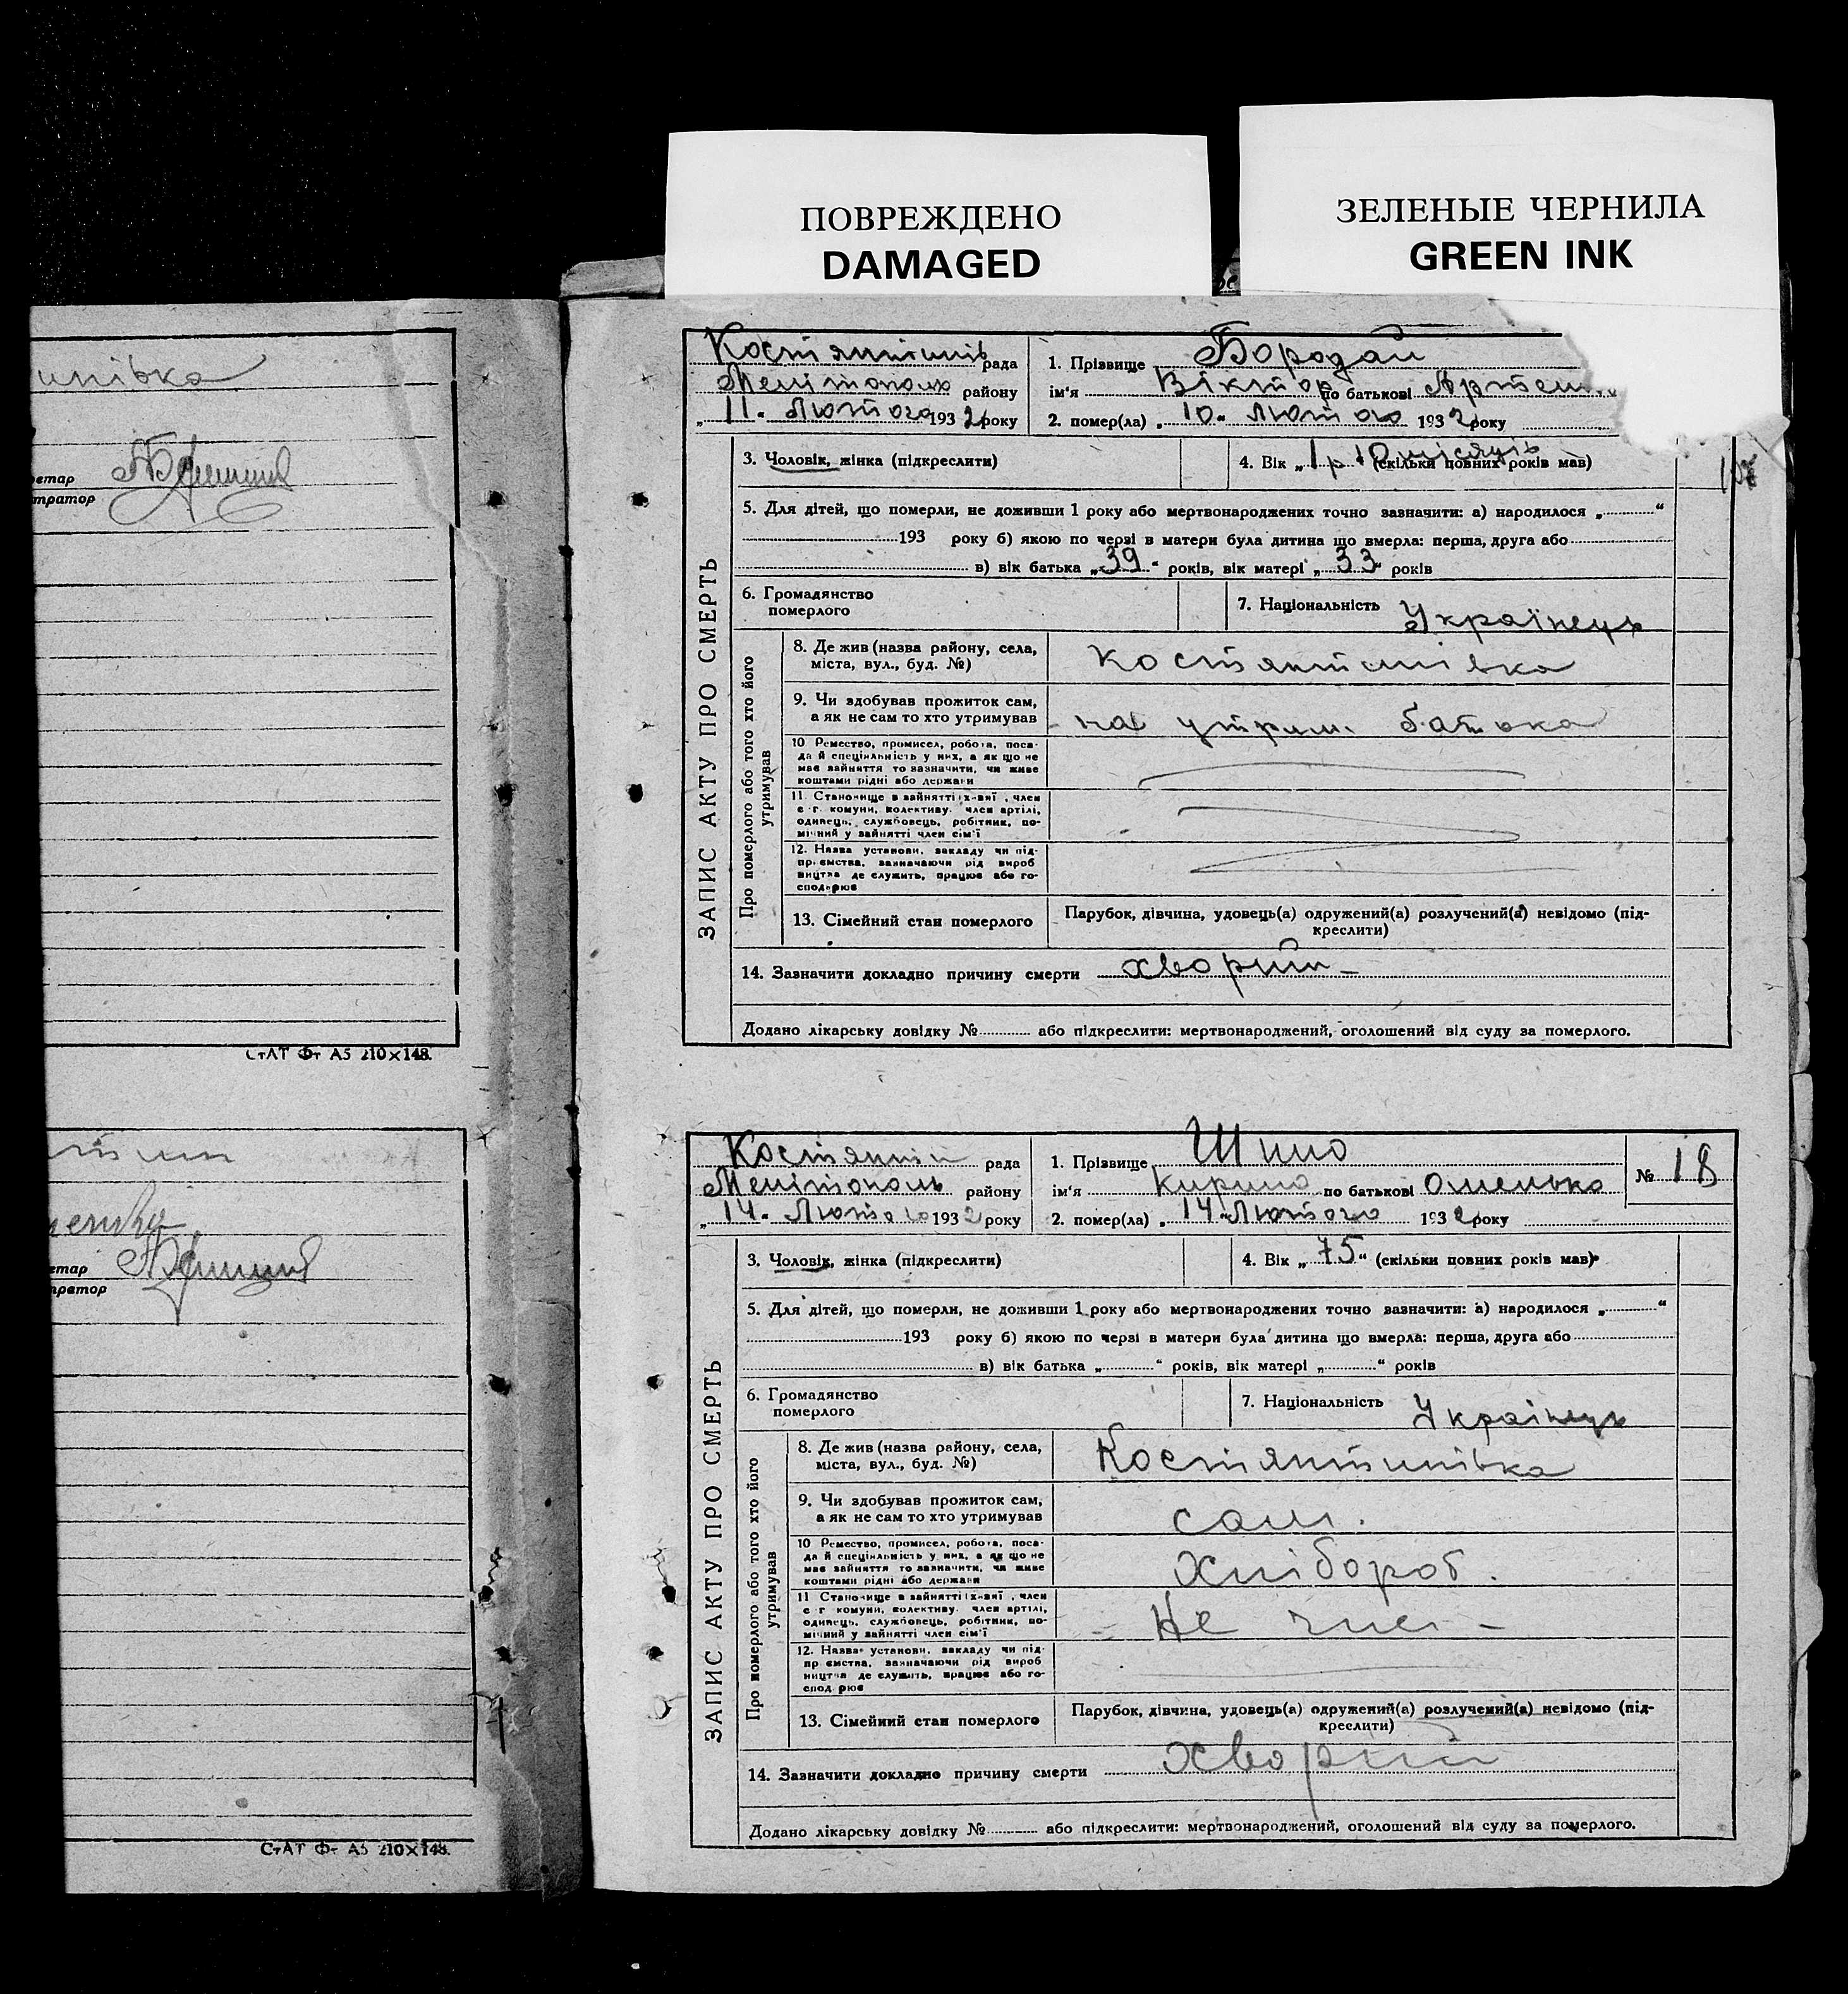 ПОВРЕЖДЕНО
DAMAGED
ЗЕЛЕНЫЕ ЧЕРНИЛА
GREEN INK
нівка
етар
тратор
СтАТ Фт А5 210×148.
етар
ратор
СтАТ Фт А5 210×148.
ЗАПИС АКТУ ПРО СМЕРТЬ
Костянтинів рада
Мелітополь району
„ 11 " Лютого 1932 року
1. Прізвище Бородай
ім'я Віктор по батькові Артем
2. помер(ла) „ 10 " Лютого 1932 року
3. Чоловік, жінка (підкреслити)
4. Вік „ 1 р 10 місяців " (скільки повних років мав)
5. Для дітей, що померли, не доживши 1 року або мертвонароджених точно зазначити: а) народилося „ "
193 року б) якою по черзі в матери була дитина що вмерла: перша, друга або
в) вік батька „ 39 " років, вік матері „ 33 " років
6. Громадянство
померлого
7. Національність Українець
Про померлого або того хто його
утримував
8. Де жив (назва району, села,
міста, вул., буд. №)
Костянтинівка
9. Чи здобував прожиток сам,
а як не сам то хто утримував
на утрим. батька
10 Ремество, промисел, робота, поса-
да й спеціяльність у них, а як що не
має зайняття то зазначити, чи живе
коштами рідні або держави
11. Становище в зайнятті , член
с-г. комуни, колективу, член артілі,
одинець, службовець, робітник, по-
мічний у зайнятті член сім'ї
12. Назва установи, закладу чи під-
приємства, зазначаючи рід вироб
ництва де служить, працює або го-
сподарює
13. Сімейний стан померлого
Парубок, дівчина, удовець(а) одружений(а) розлучений(а) невідомо (під-
креслити)
14. Зазначити докладно причину смерти хворий
Додано лікарську довідку № або підкреслити: мертвонароджений, оголошений від суду за померлого.
ЗАПИС АКТУ ПРО СМЕРТЬ
Костянтин рада
Мелітополь району
„ 14 " Лютого 1932 року
1. Прізвище Шило
ім'я Кирило по батькові Омелько
№ 18
2. помер(ла) „ 14 " Лютого 1932 року
3. Чоловік, жінка (підкреслити)
4. Вік „ 75 " (скільки повних років мав)
5. Для дітей, що померли, не доживши 1 року або мертвонароджених точно зазначити: а) народилося „ "
193 року б) якою по черзі в матери була дитина що вмерла: перша, друга або
в) вік батька „ " років, вік матері „ " років
6. Громадянство
померлого
7. Національність Українець
Про померлого або того хто його
утримував
8. Де жив (назва району, села,
міста, вул., буд. №)
Костянтинівка
9. Чи здобував прожиток сам,
а як не сам то хто утримував
сам.
10 Ремество, промисел, робота, поса-
да й спеціяльність у них, а як що не
має зайняття то зазначити, чи живе
коштами рідні або держави
Хлібороб.
11 Становище в зайнятті , член
с г комуни, колективу, член артілі,
одинець, службовець, робітник, по-
мічний у зайнятті член сім'ї
- Не член -
12. Назва установи, закладу чи під-
приємства, зазначаючи рід вироб
ництва де служить, працює або го-
сподарює
13. Сімейний стан померлого
Парубок, дівчина, удовець(а) одружений(а) розлучений(а) невідомо (під-
креслити)
14. Зазначити докладно причину смерти хворий
Додано лікарську довідку № або підкреслити: мертвонароджений, оголошений від суду за померлого.